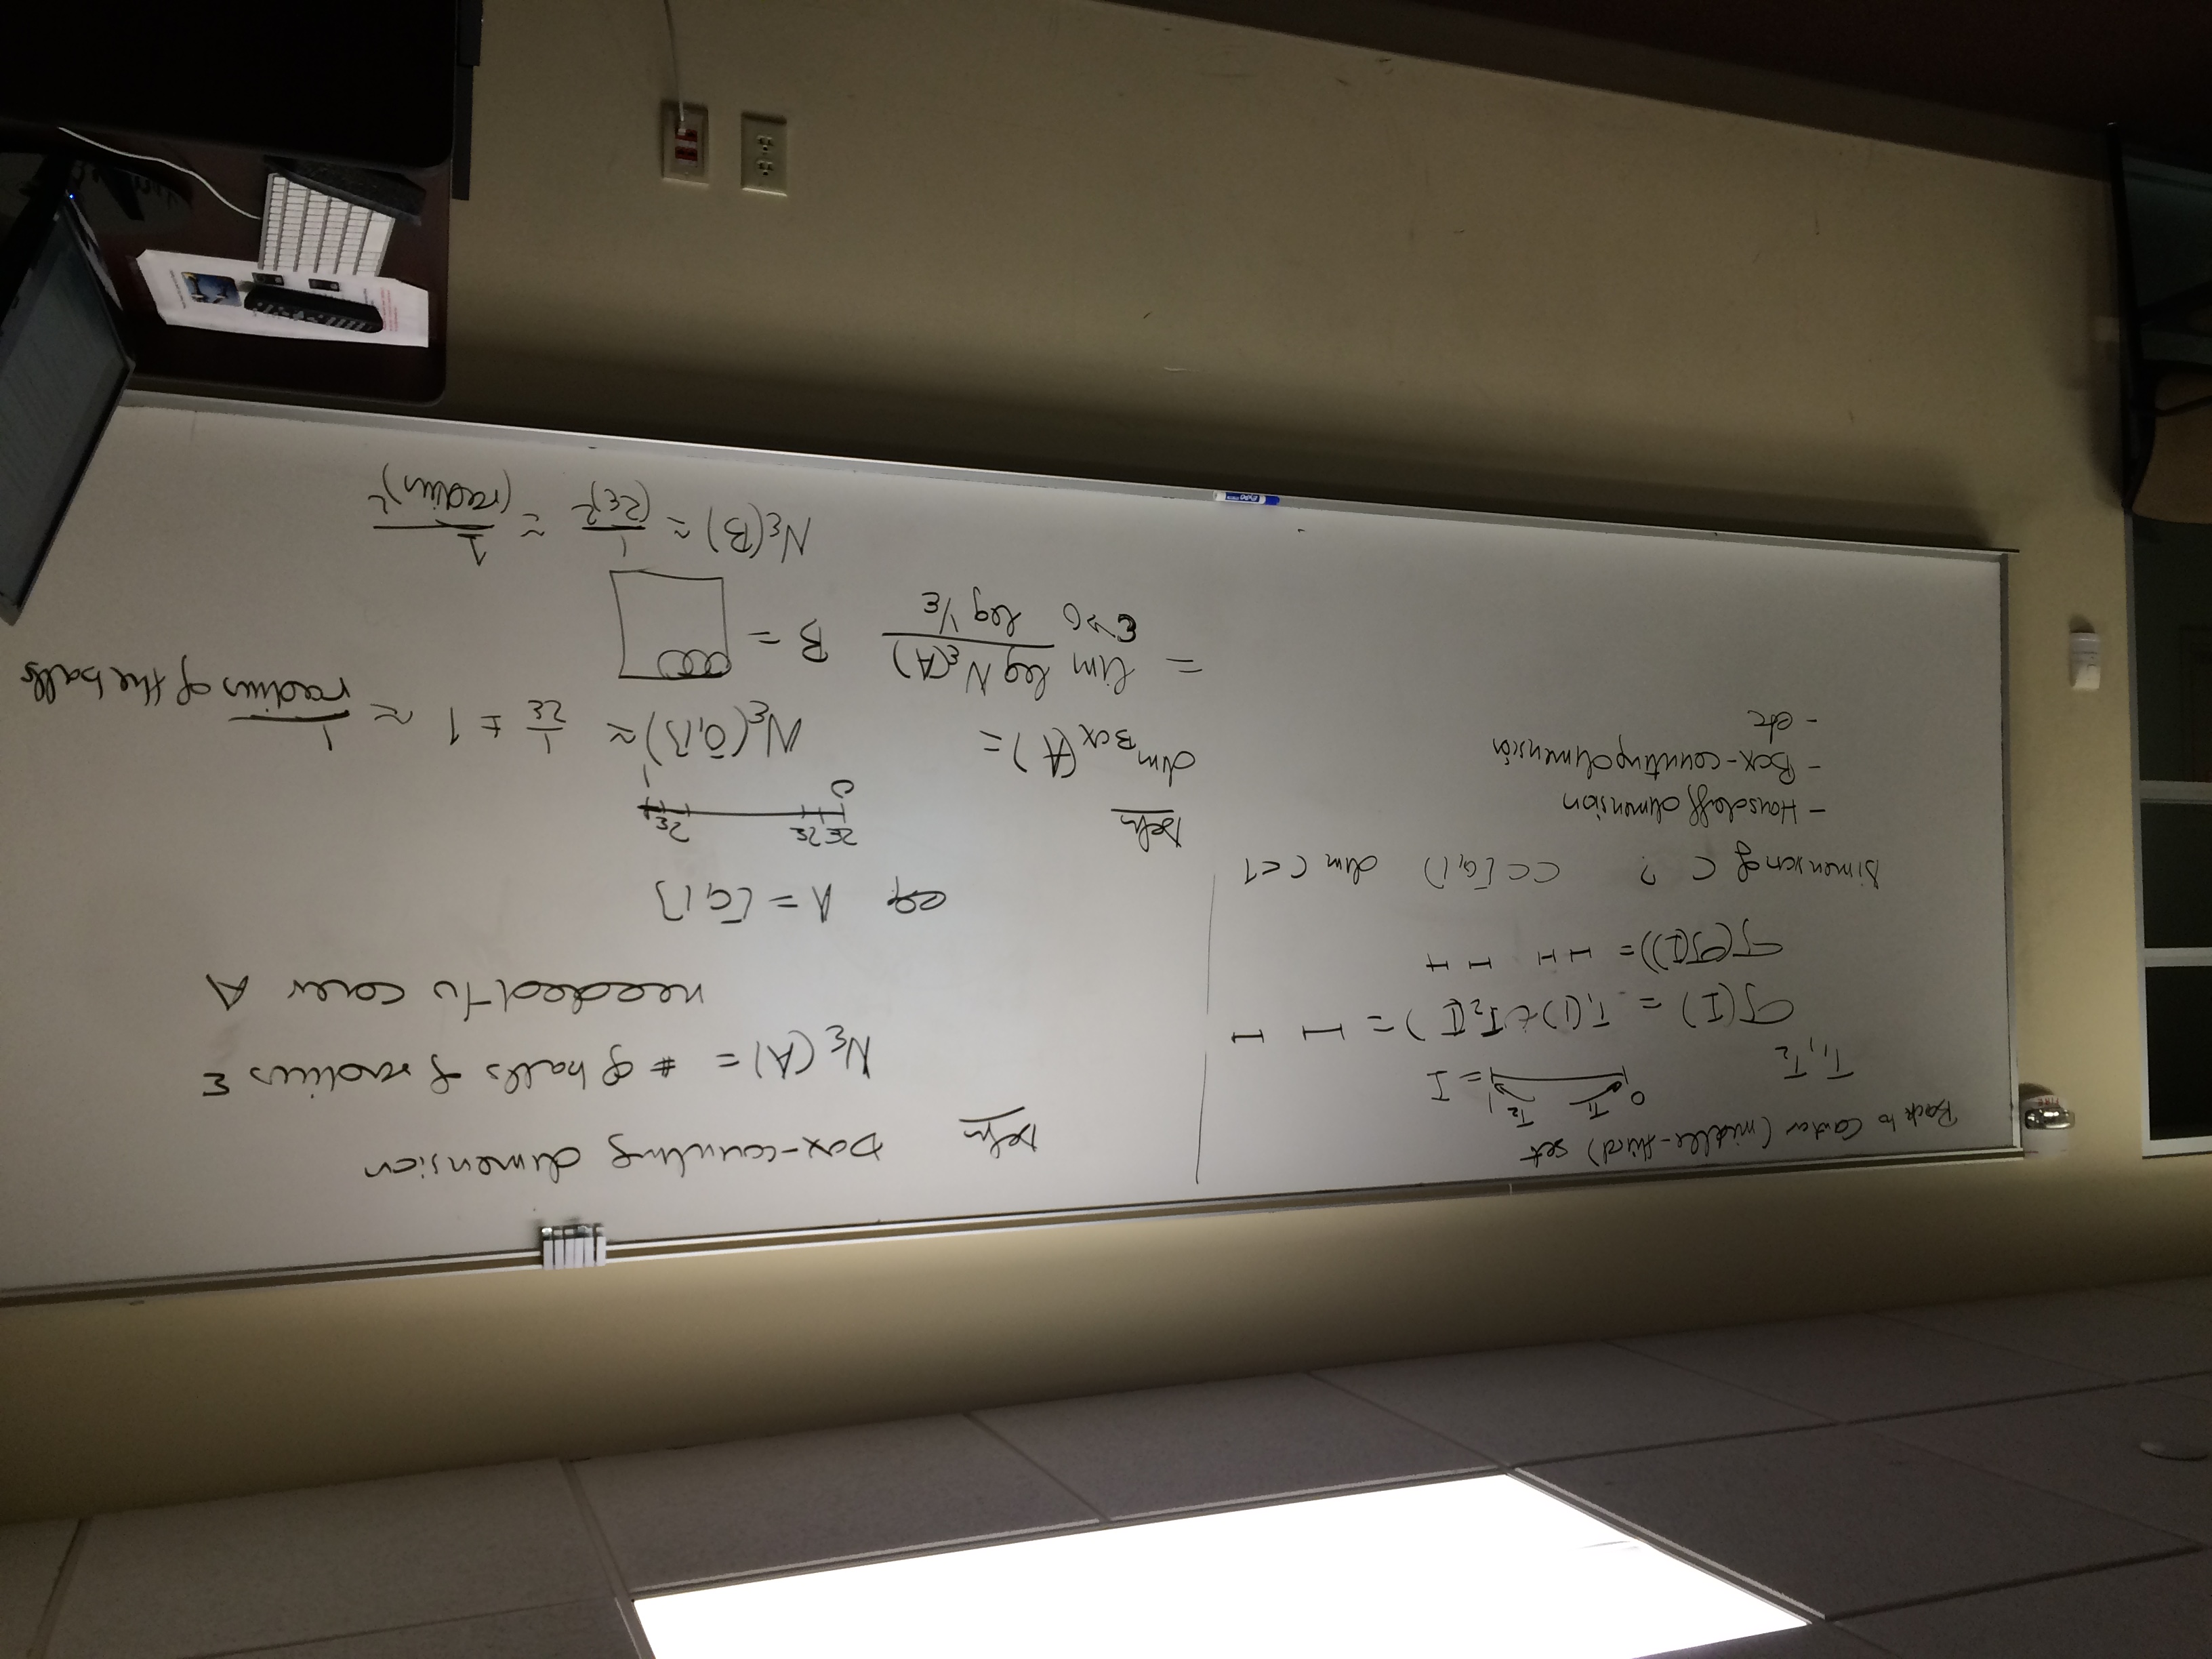 Back to Cantor (middle-third) set
T₁ T₂
0 1 = I
T₁, T₂
𝒯(I) = T₁(I) ∪ T₂(I) =
𝒯(𝒯(I)) =
Dimension of C ? C ⊂ [0,1] dim C < 1
- Hausdorff dimension
- Box-counting dimension
- etc
Defn Box-counting dimension
N_ε(A) = # of balls of radius ε
needed to cover A
eg A = [0,1]
2ε 2ε 2ε
0 1
N_ε([0,1]) ≈ 1/2ε ± 1 ≈ 1/radius of the balls
Defn
dim_Box(A) =
= lim_{ε→0} log N_ε(A) / log 1/ε
B =
N_ε(B) ≈ 1/(2ε)² ≈ 1/(radius)²